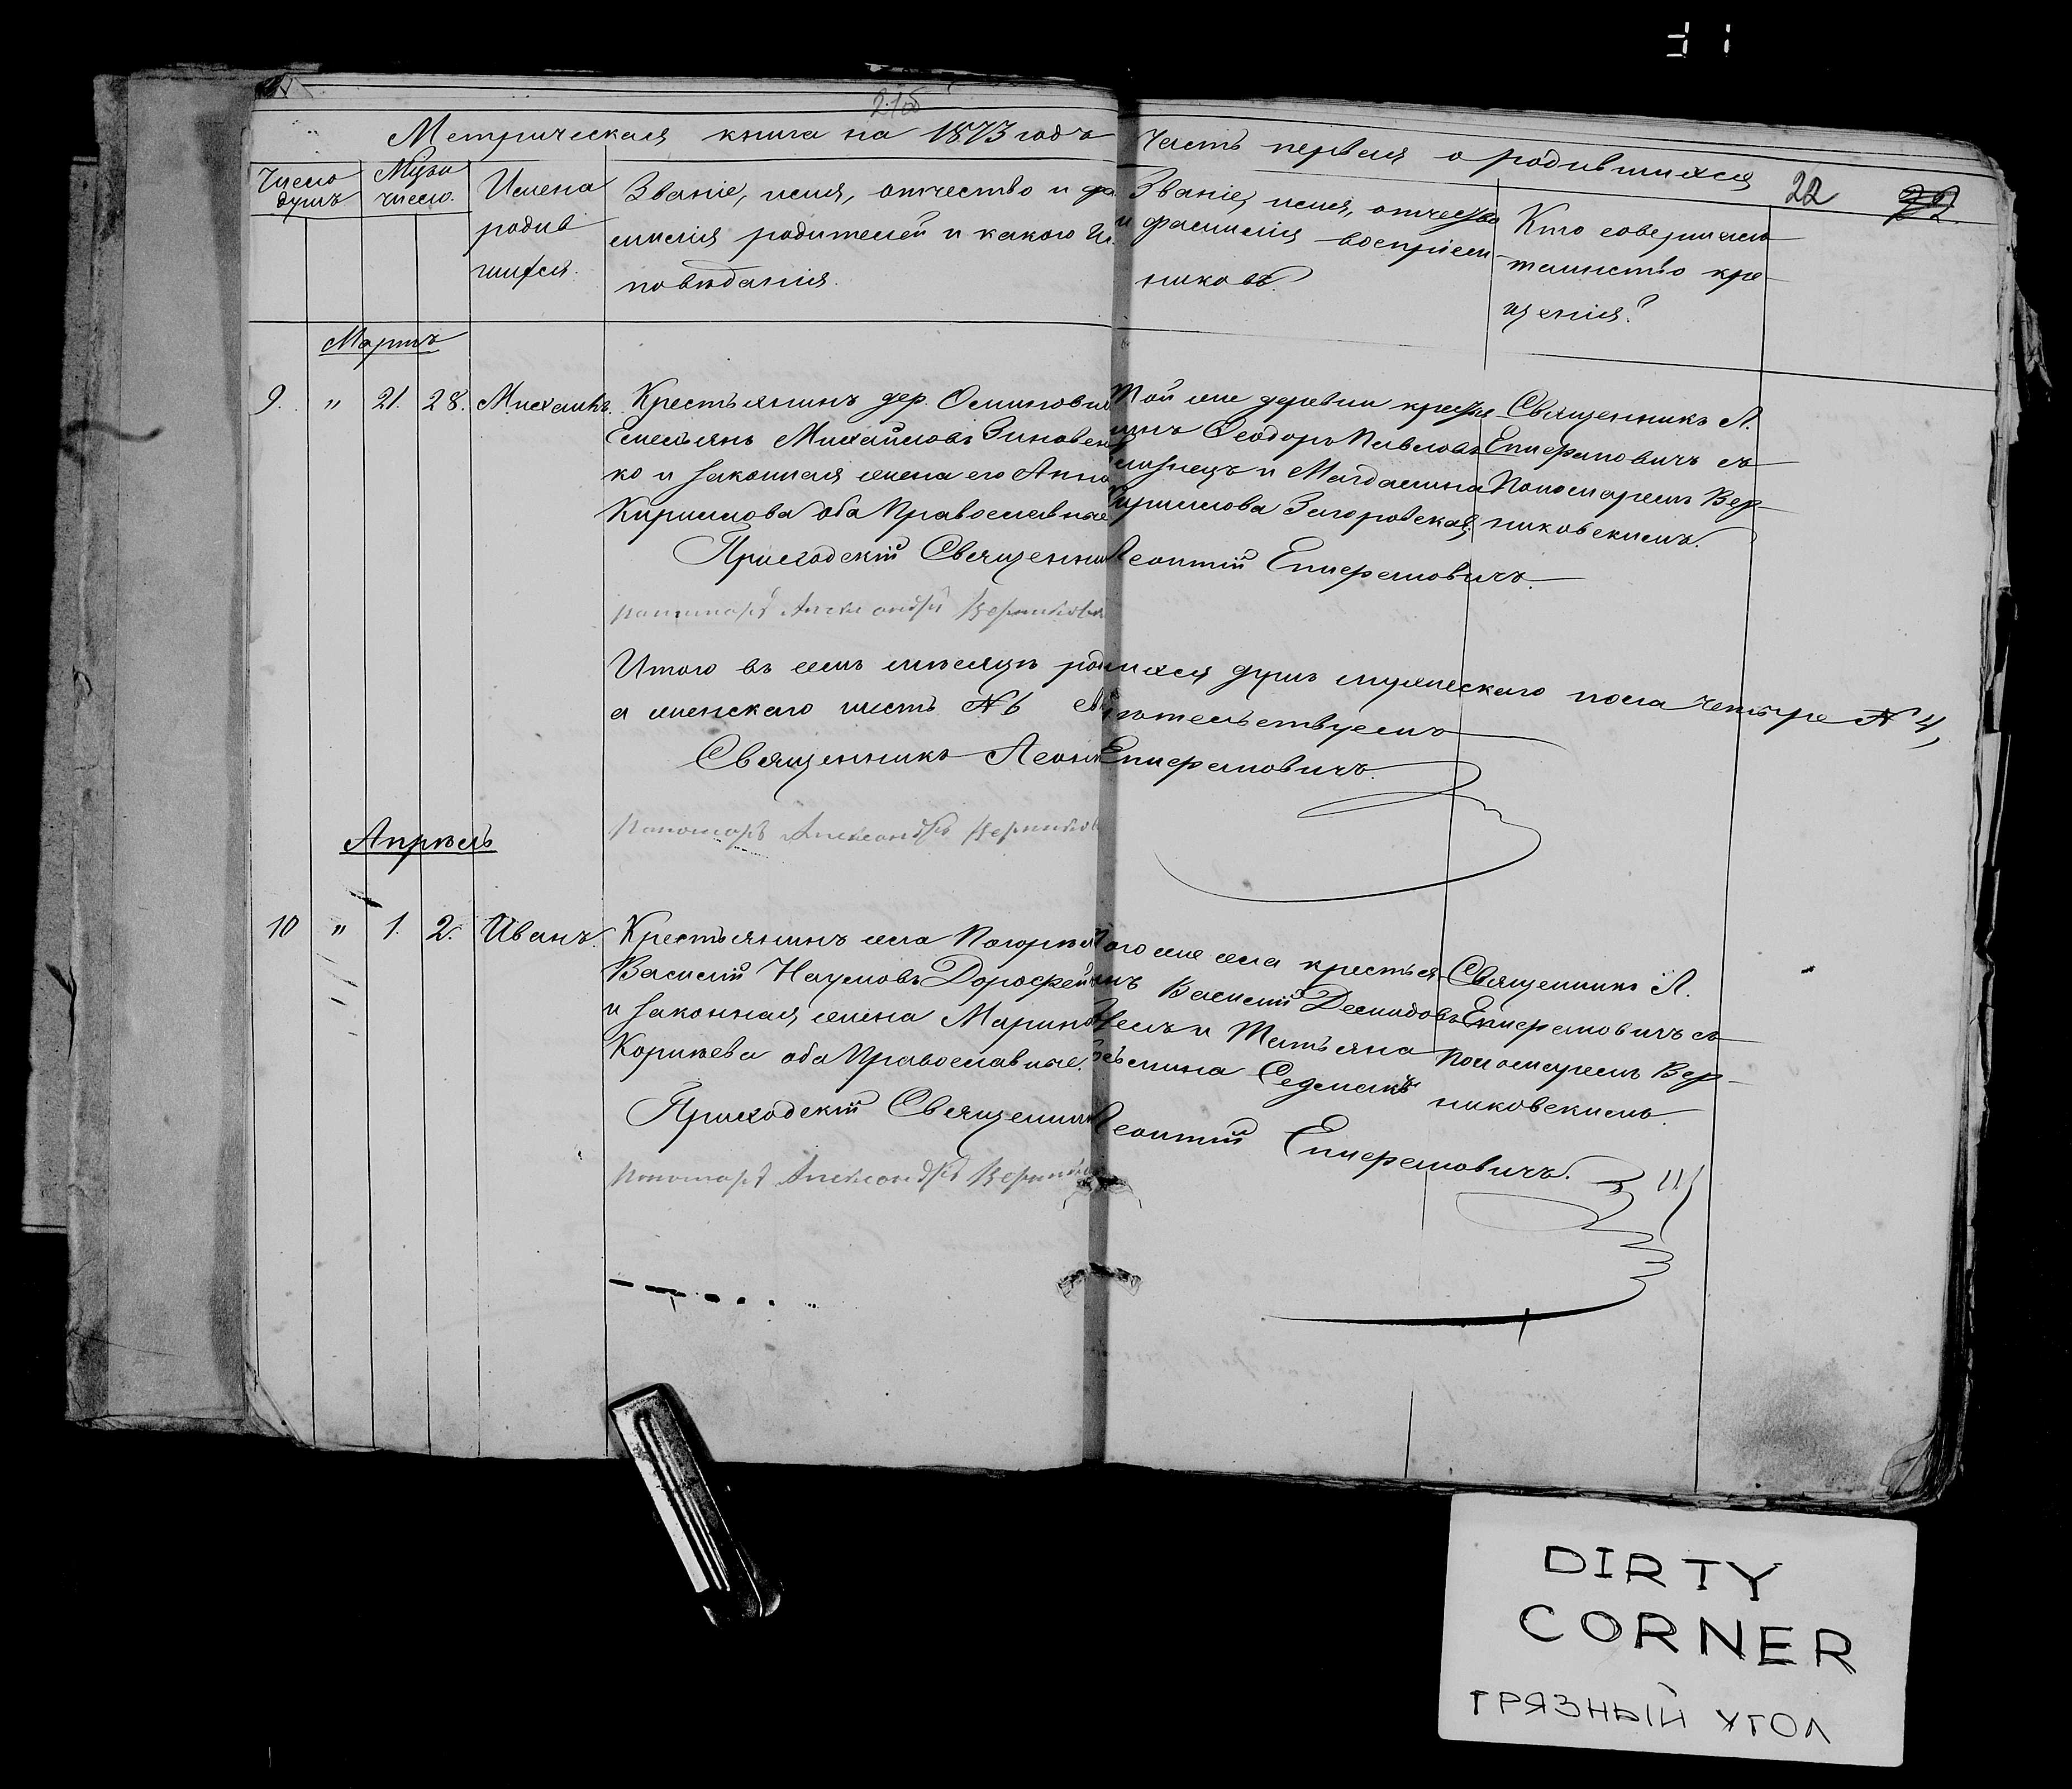 21об
Метрическая книга на 1873 годъ
Часть первая о родившихся
22
Число душъ
Муж.
число.
Имена родив шихся.
Званіе, имя, отчество и фа
милія родителей и какого Ис
повѣданія.
Званіе, имя, отчество
и фамилія воспріем
никовъ.
Кто совершалъ
таинство кре-
щенія?
Мартъ
9. " 21. 28. Михаилъ.
Крестьянинъ дер. Осиповки
Емельянъ Михайловъ Зиновен
ко и законная жена его Анна
Кириллова оба Православные
Той же деревни кресть
инъ Ѳеодоръ Павловъ
и Магдалина
Кириллова Загоровская
Священникъ Л.
Епифановичъ съ
Пономаремъ Вер-
никовскимъ.
Приходскій Священникъ Леонтій Епифановичъ.
пономарь Александръ Верников
Итого въ семъ мѣсяцѣ родилися душъ мужескаго пола четыре № 4,
а женскаго шесть № 6 свидѣтельствуемъ
Священникъ Леонт Епифановичъ.
Пономарь Александръ Верников
Апрѣль
10 " 1. 2. Иванъ.
Крестьянинъ села
Василій Наумовъ Дорофей
и законная жена Марина
Корнѣева оба Православные.
Того же села крестья
нинъ Василій Демидовъ
и Татьяна
Седмакъ
Священникъ Л.
Епифановичъ съ
Пономаремъ Вер-
никовскимъ.
Приходскій Священникъ Леонтій Епифановичъ.
Пономарь Александръ Верников
DIRTY
CORNER
ГРЯЗНЫЙ УГОЛ